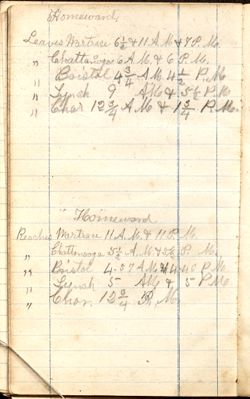 Homeward,
Leaves Wartrace 6½ & 11 A M & 7 P. M.
" Chattanooga 6 A M. & 6 P. M.
" Bristol 4¾ A M 4½ P. M.
" Lynch 9 AM & 5½ P. M
" Char 12¾ A M & 1¾ P. M.
" Homeward
Reaches Wartrace 11 A. M. & 11 P. M.
" Chattanooga 5½ A. M. & 5½ P. M.
" Bristol 4.07 A. M. & 4.40 P. M.
" Lynch 5 AM & 5 P M
" Char. 12¾ P. M.